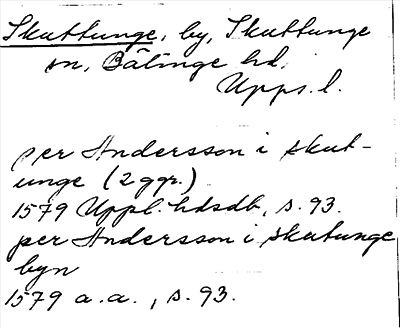 Skuttunge, by, Skuttunge
sn, Bälinge hd.
Upps. l.
per Andersson i skut-
unge (2 ggr.)
1579 Uppl. hdsdb, s. 93.
per Andersson i skutunge
byn
1579 a.a., s. 93.